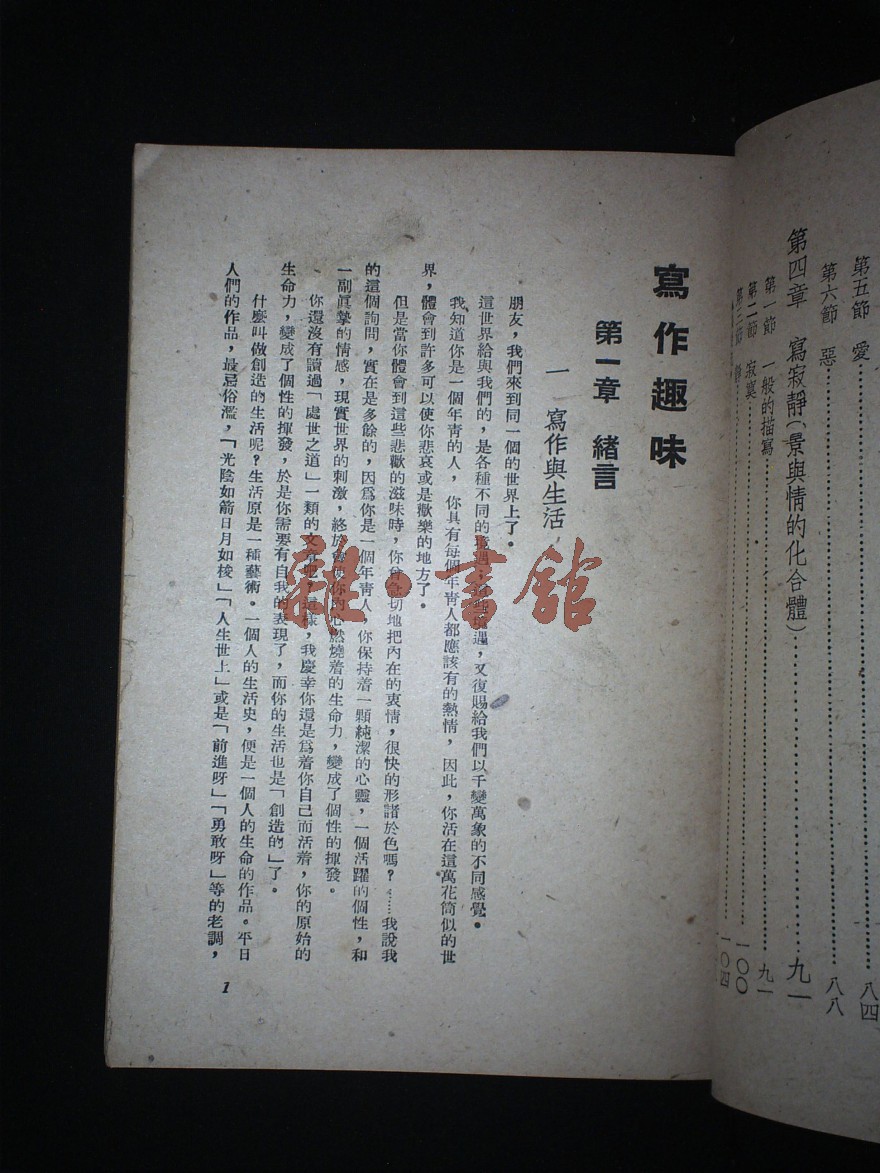 第五節 愛⋯⋯⋯⋯⋯⋯八四
第六節 惡⋯⋯⋯⋯⋯⋯八八
第四章 寫寂靜(景與情的化合體)⋯⋯⋯⋯⋯⋯九一
第一節 一般的描寫⋯⋯⋯⋯⋯⋯九一
第二節 寂寞⋯⋯⋯⋯⋯⋯一〇〇
第三節 靜⋯⋯⋯⋯⋯⋯一〇四
寫作趣味
第一章 緒言
一 寫作與生活
朋友,我們來到同一個的世界上了。
這世界給與我們的,是各種不同的遭遇,遭遇,又復賜給我們以千變萬象的不同感覺。
我知道你是一個年靑的人,你具有每個年靑人都應該有的熱情,因此,你活在這萬花筒似的世
界,體會到許多可以使你悲哀或是歡樂的地方了。
但是當你體會到這些悲歡的滋味時,你曾急切地把內在的衷情,很快的形諸於色嗎?⋯⋯我說我
的這個詢問,實在是多餘的,因爲你是一個年靑人,你保持着一顆純潔的心靈,一個活躍的個性,和
一副眞摯的情感,現實世界的刺激,終於你內心燃燒着的生命力,變成了個性的揮發。
你還沒有讀過「處世之道」一類的文章吧,這樣,我慶幸你還是爲着你自己而活着,你的原始的
生命力,變成了個性的揮發,於是你需要有自我的表現了,而你的生活也是「創造的」了。
什麼叫做創造的生活呢?生活原是一種藝術。一個人的生活史,便是一個人的生命的作品。平日
人們的作品,最忌俗濫,「光陰如箭日月如梭」「人生世上」或是「前進呀」「勇敢呀」等的老調,
1
雜·書館